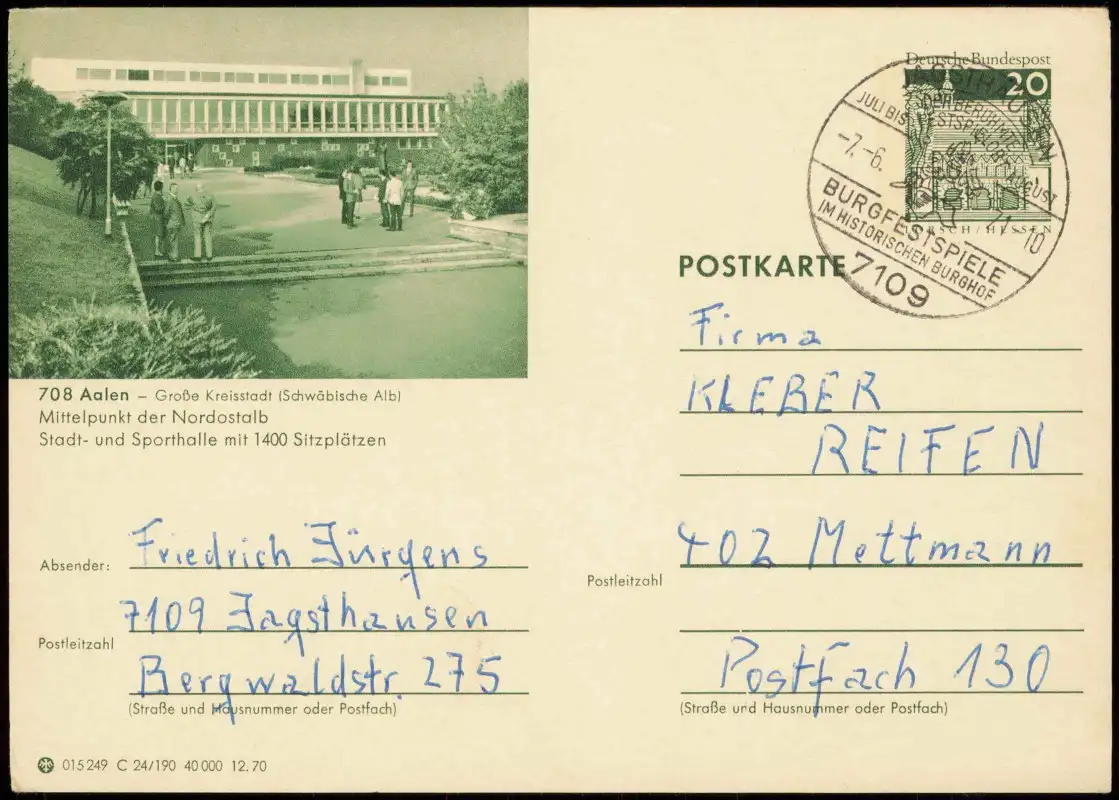 Deutsche Bundespost
20
JAGSTHAUSEN
JULI BIS AUGUST
-7.-6. 71-10
BURGFESTSPIELE
IM HISTORISCHEN BURGHOF
7109
LORSCH/HESSEN
POSTKARTE
Firma
KLEBER
REIFEN
402 Mettmann
Postleitzahl
Postfach 130
(Straße und Hausnummer oder Postfach)
708 Aalen – Große Kreisstadt (Schwäbische Alb)
Mittelpunkt der Nordostalb
Stadt- und Sporthalle mit 1400 Sitzplätzen
Absender: Friedrich Jürgens
7109 Jagsthausen
Postleitzahl
Bergwaldstr. 275
(Straße und Hausnummer oder Postfach)
015249 C 24/190 40000 12.70